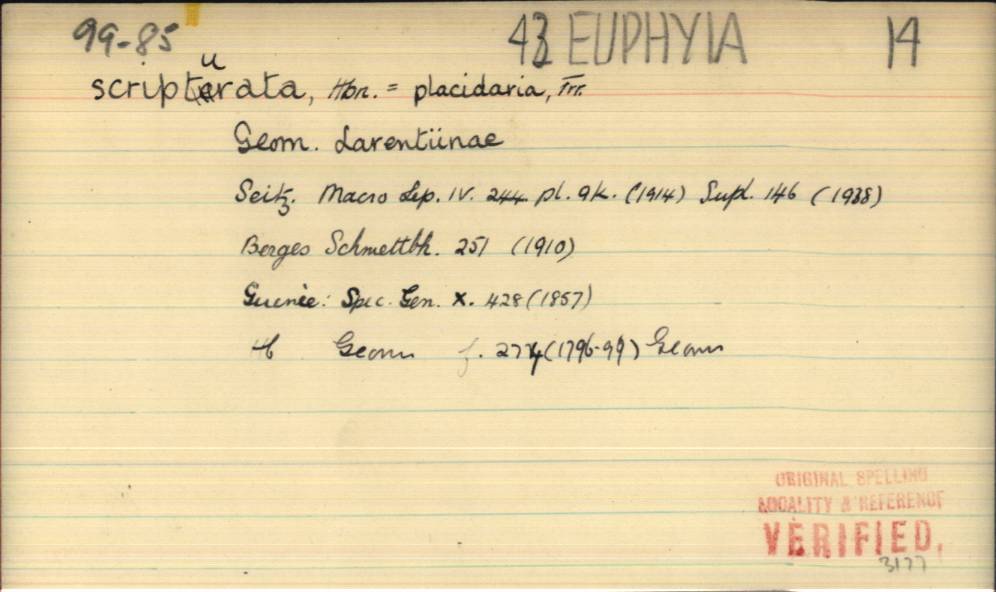 99-85 43 EUPHYIA 14
u
scripterata, Hbn. = placidaria, Frr.
Geom. Larentiinae
Seitz. Macro Lep. IV. 244 pl. 9k. (1914) Supl. 146 (1938)
Berges Schmettbh. 251 (1910)
Guenée: Spec. Gen. X. 428 (1857)
H Geom f. 274 (1796-99) Geom
ORIGINAL SPELLING
LOCALITY & REFERENCE
VERIFIED.
3177